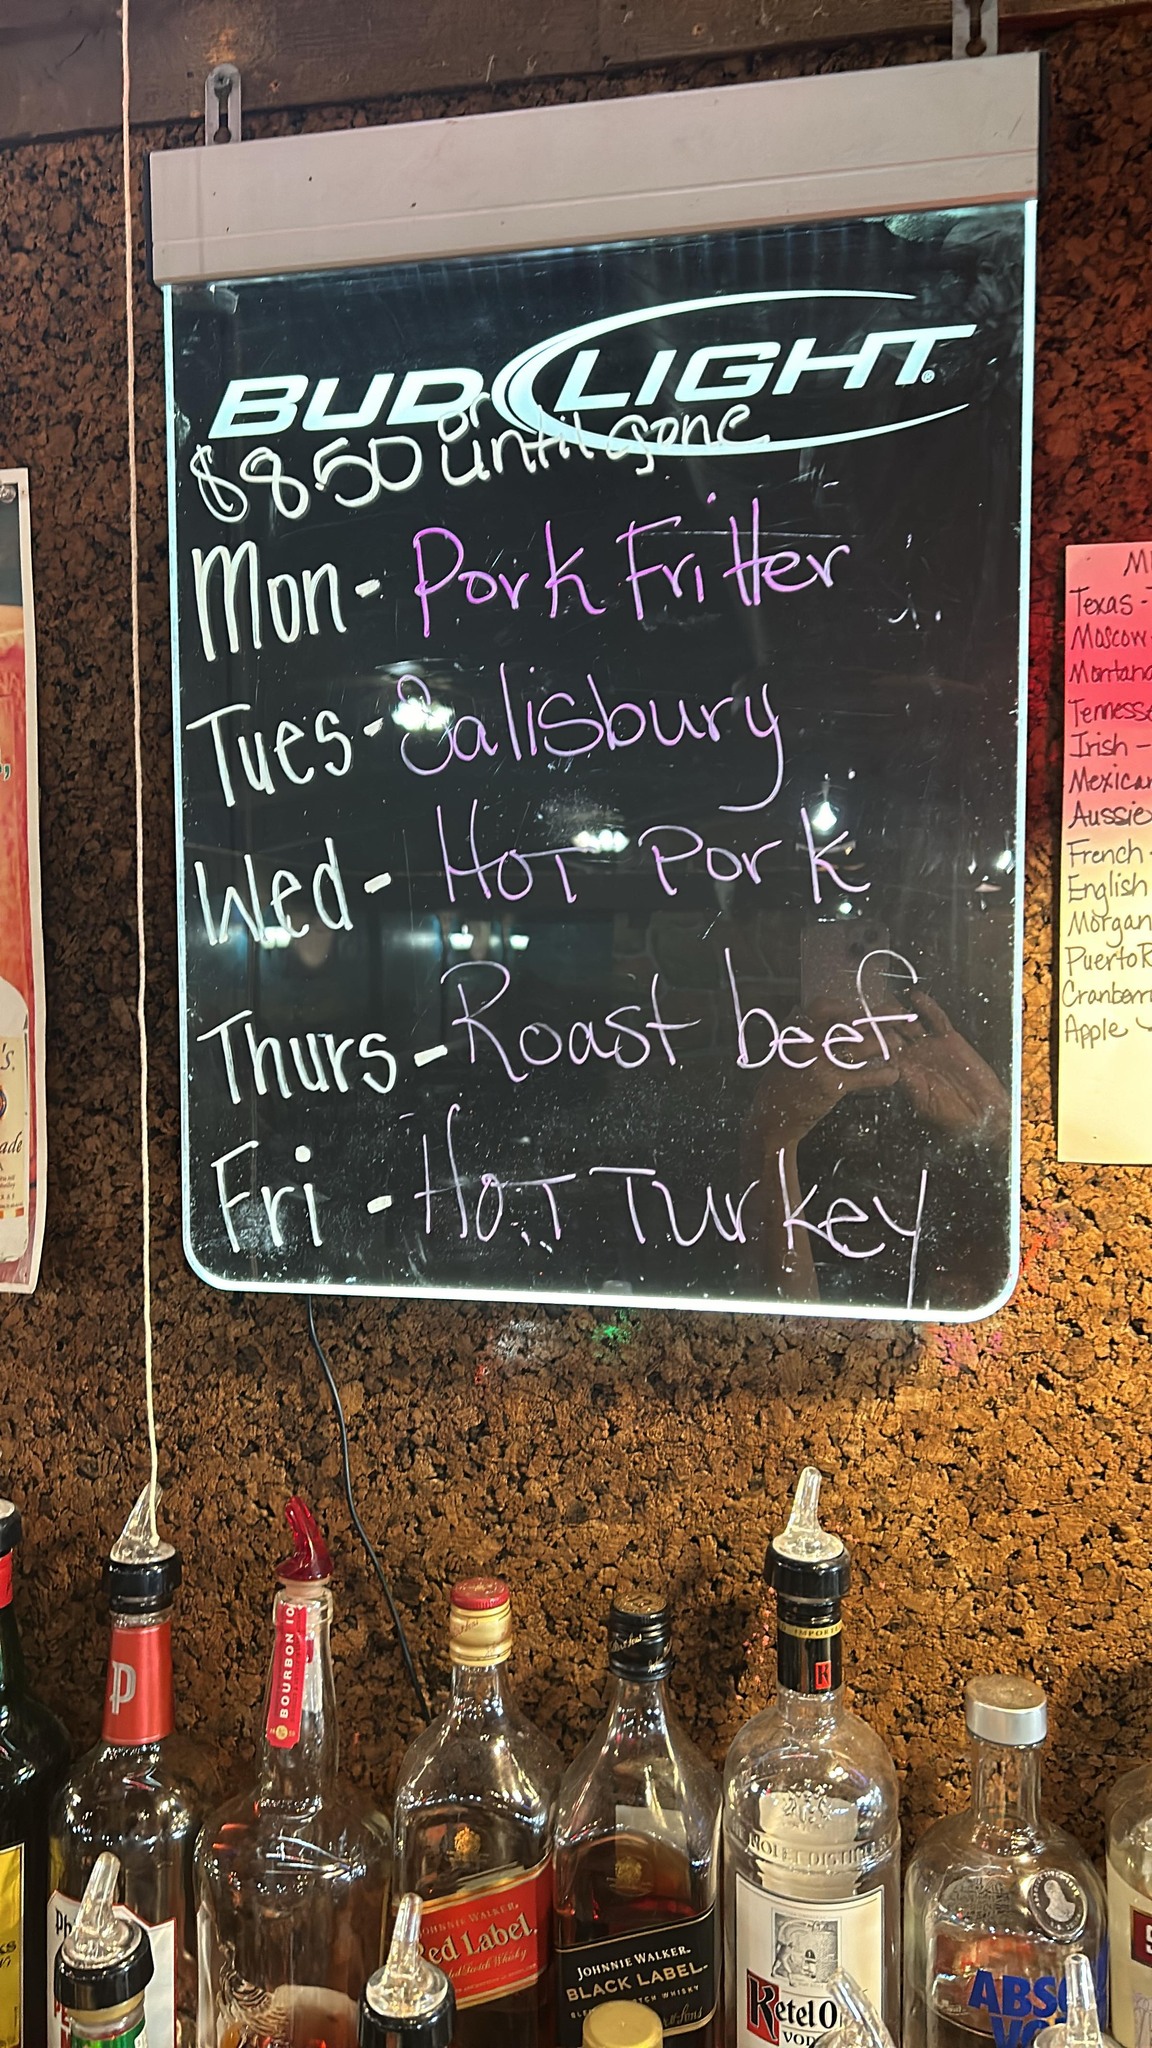 BUD LIGHT®
$8.50 or until gone
Mon - Pork Fritter
Tues - Salisbury
Wed - HOT Pork
Thurs - Roast beef
Fri - HOT Turkey
Texas -
Moscow -
Montana
Tennesse
Irish -
Mexican
Aussie
French -
English
Morgan
Puerto R
Cranberr
Apple
ade
P
BOURBON
JOHNNIE WALKER.
Red Label.
JOHNNIE WALKER.
BLACK LABEL
SCOTCH WHISKY
IMPORTED
K
NOLET DISTIL
Ketel O
VOD
ABSO
VO